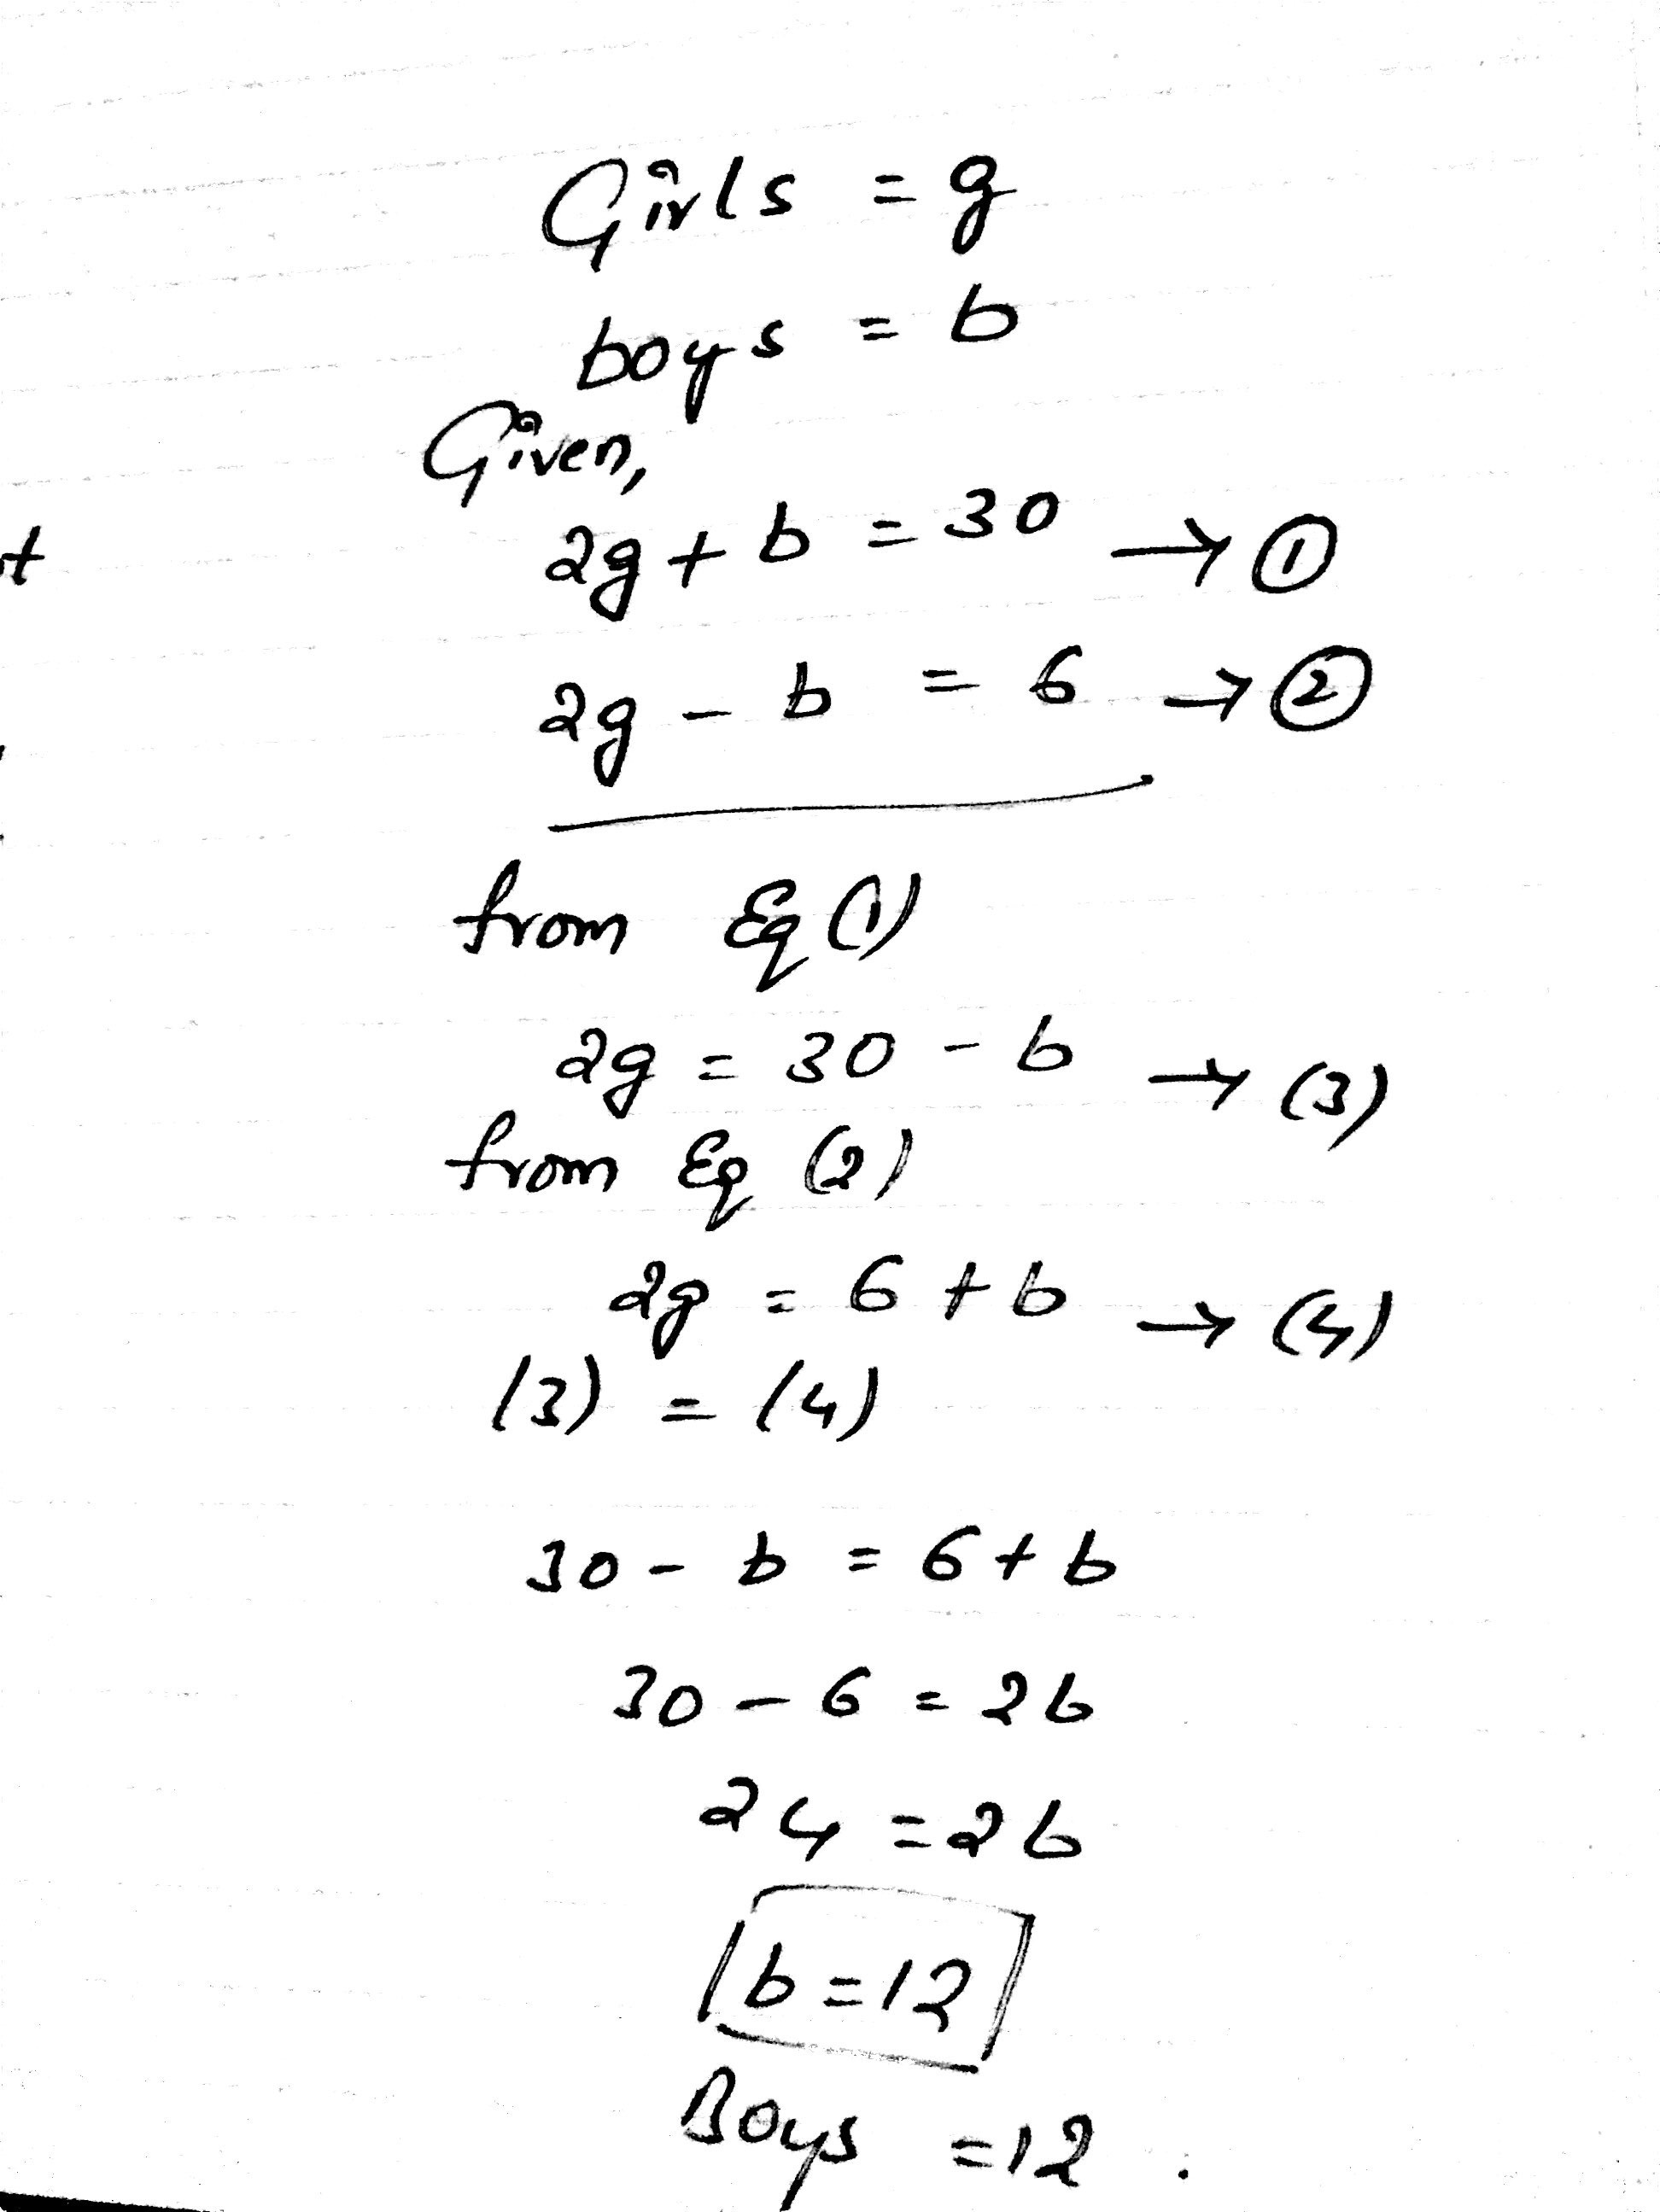 Girls = g
boys = b
Given,
2g + b = 30 → ①
2g - b = 6 → ②
from Eq (1)
2g = 30 - b → (3)
from Eq (2)
2g = 6 + b → (4)
(3) = (4)
30 - b = 6 + b
30 - 6 = 2b
24 = 2b
b = 12
Boys = 12.